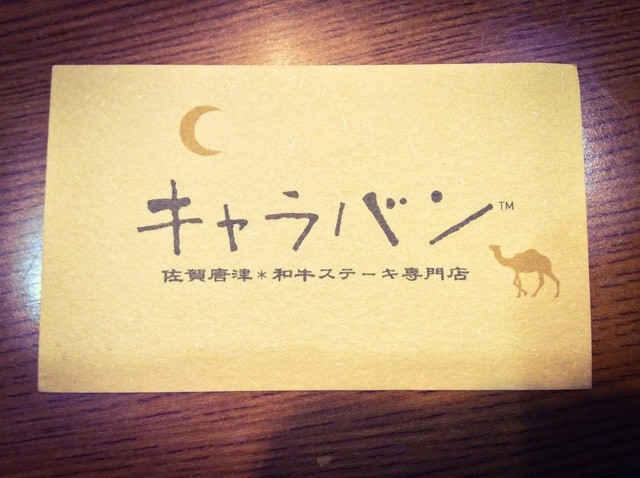 キャラバン™
佐賀唐津＊和牛ステーキ専門店